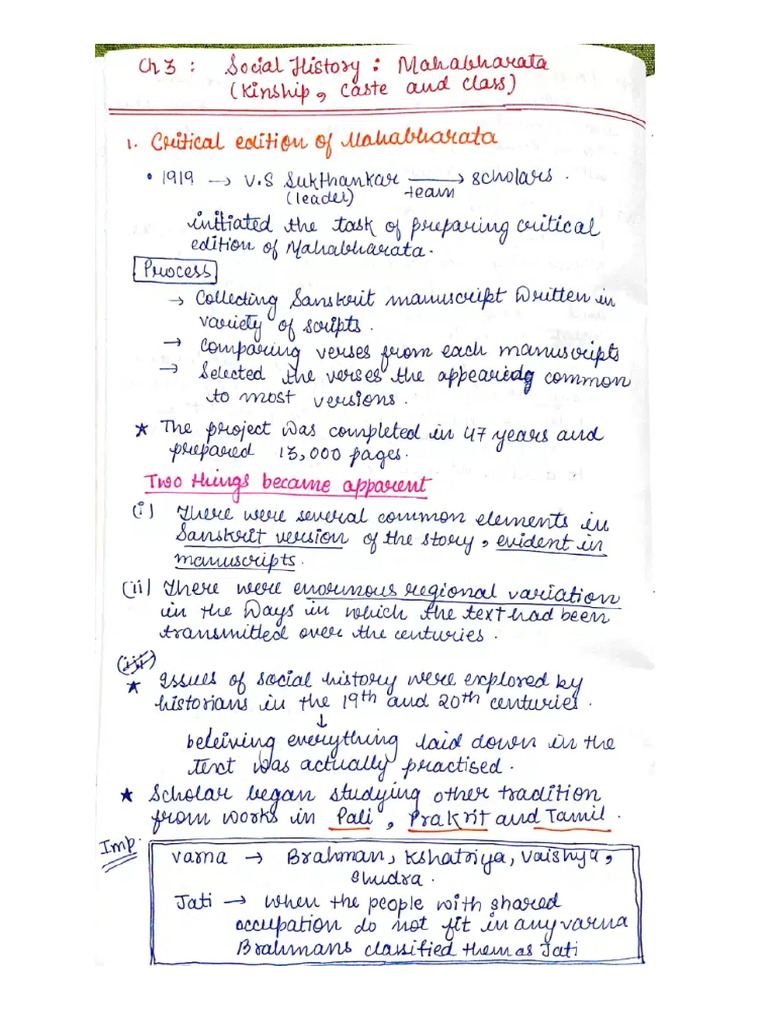 Ch 3 : Social History : Mahabharata
(Kinship, Caste and Class)
1. Critical edition of Mahabharata
• 1919 → V.S Sukthankar → scholars.
(leader) team
initiated the task of preparing critical
edition of Mahabharata.
Process
→ Collecting Sanskrit manuscript written in
variety of scripts.
→ Comparing verses from each manuscripts
→ Selected the verses the appearing common
to most versions.
★ The project was completed in 47 years and
prepared 13,000 pages.
Two things became apparent
(i) There were several common elements in
Sanskrit version of the story, evident in
manuscripts.
(ii) There were enormous regional variation
in the ways in which the text had been
transmitted over the centuries.
(iii)
★ Issues of social history were explored by
historians in the 19th and 20th centuries.
↓
beleiving everything laid down in the
text was actually practised.
★ Scholar began studying other tradition
from works in Pali, Prakrit and Tamil.
Imp:
Varna → Brahman, Kshatriya, Vaishya,
Shudra.
Jati → when the people with shared
occupation do not fit in any varna
Brahmans classified them as Jati